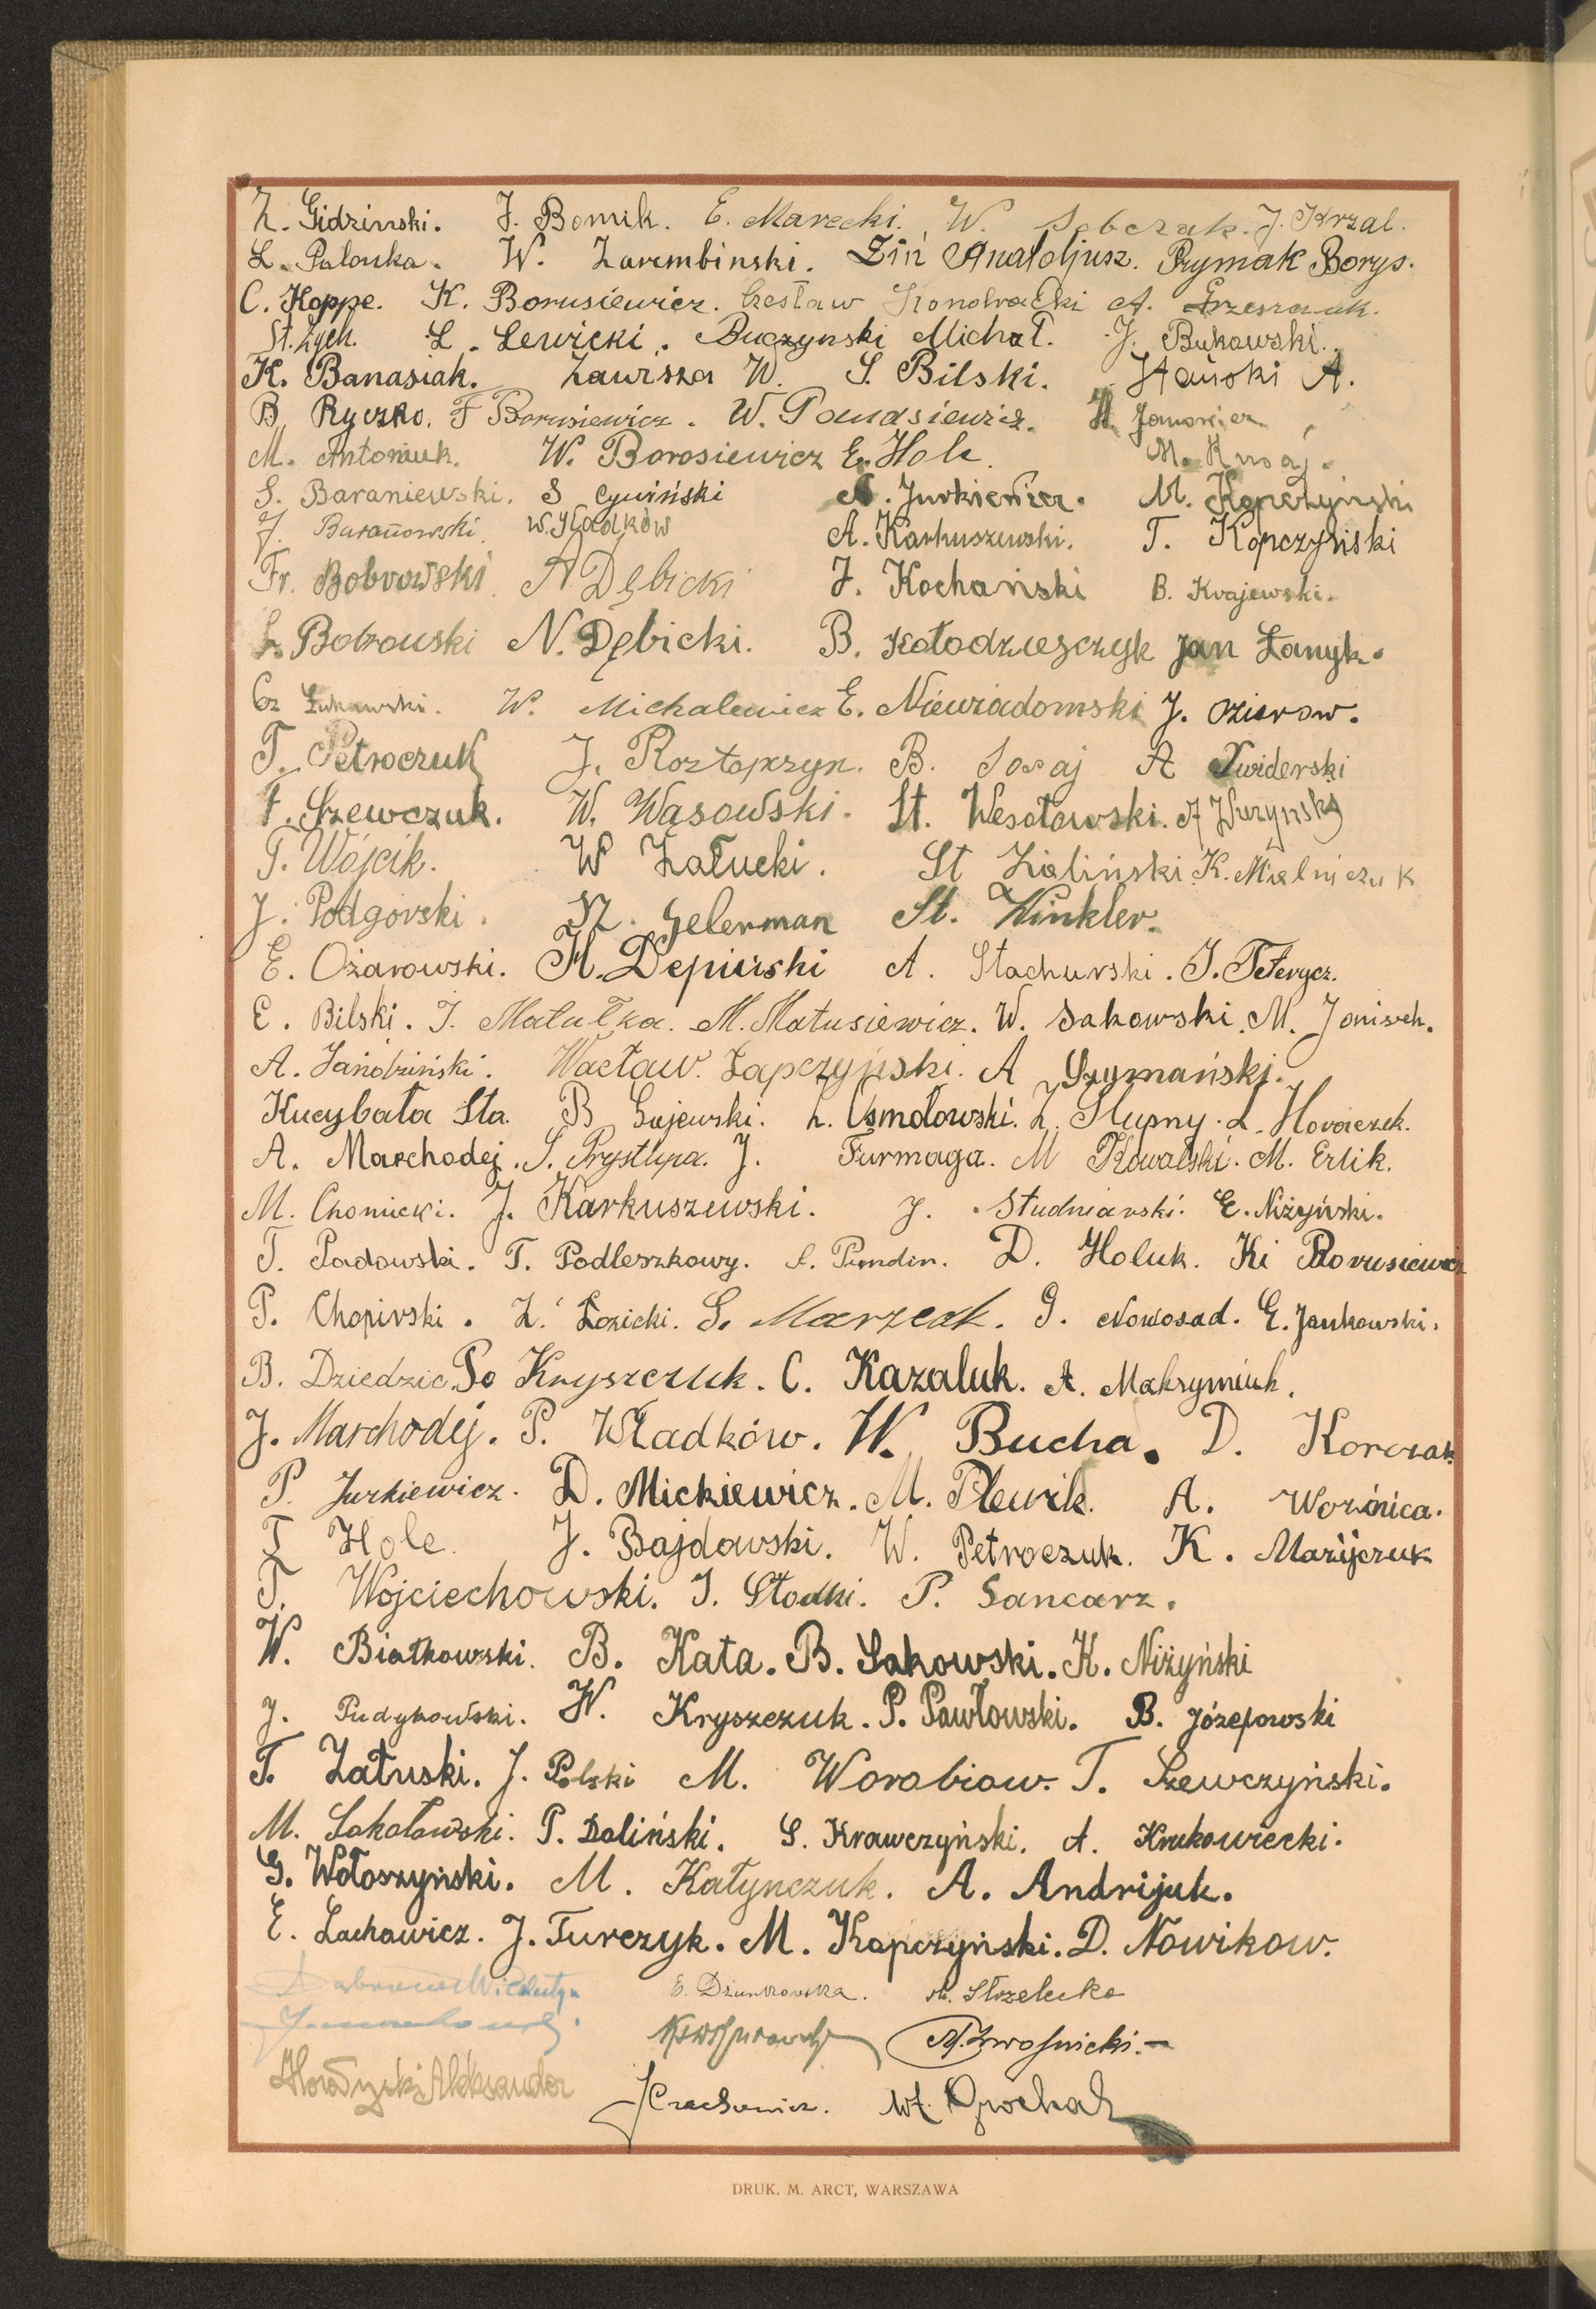 Z. Gidzinski. J. Bomik. E. Marecki. W. Sobczak. J. Krzal.
L. Palonka. W. Zarembinski. Ziń Anatoljusz. Prymak Borys.
C. Hoppe. K. Borusiewicz. Czesław Kondracki A. Grzeszczuk.
St. Zych. L. Lewicki. Buczynski Michał. J. Bukowski.
K. Banasiak. Zawisza W. S. Bilski. A.
B. Ryczko. F Borusiewicz. W. Panasiewicz.
M. Antoniuk. W. Borosiewicz E. Hole.
S. Baraniewski. S Cywiński A. Jurkiewicz. M. Kopczyński
J. Baranowski. W. Gładków A. Karkuszewski. T. Kopczyński
Fr. Bobrowski. A Dębicki J. Kochański B. Krajewski.
Bobrowski N. Dębicki. B. Kołodziejczyk Jan Łanyk.
Cz Żukowski. W. Michalewicz E. Niewiadomski J. Ozierow.
T. Petroczuk J. Roztopczyn. B. Sosaj A Świderski
F. Szewczuk. W. Wąsowski. St. Wesołowski. A
T. Wójcik. W Załucki. St Zieliński. K. Mielniczuk
J. Podgórski. Sz. Gelerman St. Winkler.
E. Ożarowski. H. Depiński A. Stachurski. J. Teterycz.
E. Bilski. J. Matułka. M. Matusiewicz. W. Sakowski. M. Jonisch.
A. Wacław Łapczyński. A Szymański.
Kucybała Sta. B Gajewski. L. Osmołowski. Z. Słupny. L. Horaczek.
A. Marchodej. S. Prystupa. J. Furmaga. M Kowalski. M. Erlik.
M. Chomicki. J. Karkuszewski. J. Studniarski. E. Niżyński.
T. Padowski. T. Podleszkowy. D. Holuk. Ki Borusiewicz
P. Chopivski. Z. Łozicki. S. Marzeak. G. Nowosad. E. Jankowski.
B. Dziedzic. Po Kryszczuk. C. Kazaluk. A. Maksymiuk.
J. Marchodej. P. Władków. W. Bucha. D. Korczak
P. Jurkiewicz. D. Mickiewicz. M. Plewik. A. Worónica.
T Hole. J. Bajdowski. W. Petroczuk. K. Maryjczuk
T. Wojciechowski. J. Słodki. P. Sancarz.
W. Białkowski. B. Kata. B. Sakowski. K. Niżyński
J. Pudykowski. W. Kryszczuk. P. Pawłowski. B. Józefowski
T. Załuski. J. Polski M. Worobiow. T. Szewczyński.
M. Sokołowski. P. Doliński. S. Krawczyński. A. Krukowiecki.
G. Wołoszyński. M. Kałynczuk. A. Andrijuk.
E. Lachawicz. J. Turczyk. M. Kopczyński. D. Nowikow.
E. Dziunkowska. M. Strzelecka
Aleksander
DRUK. M. ARCT, WARSZAWA